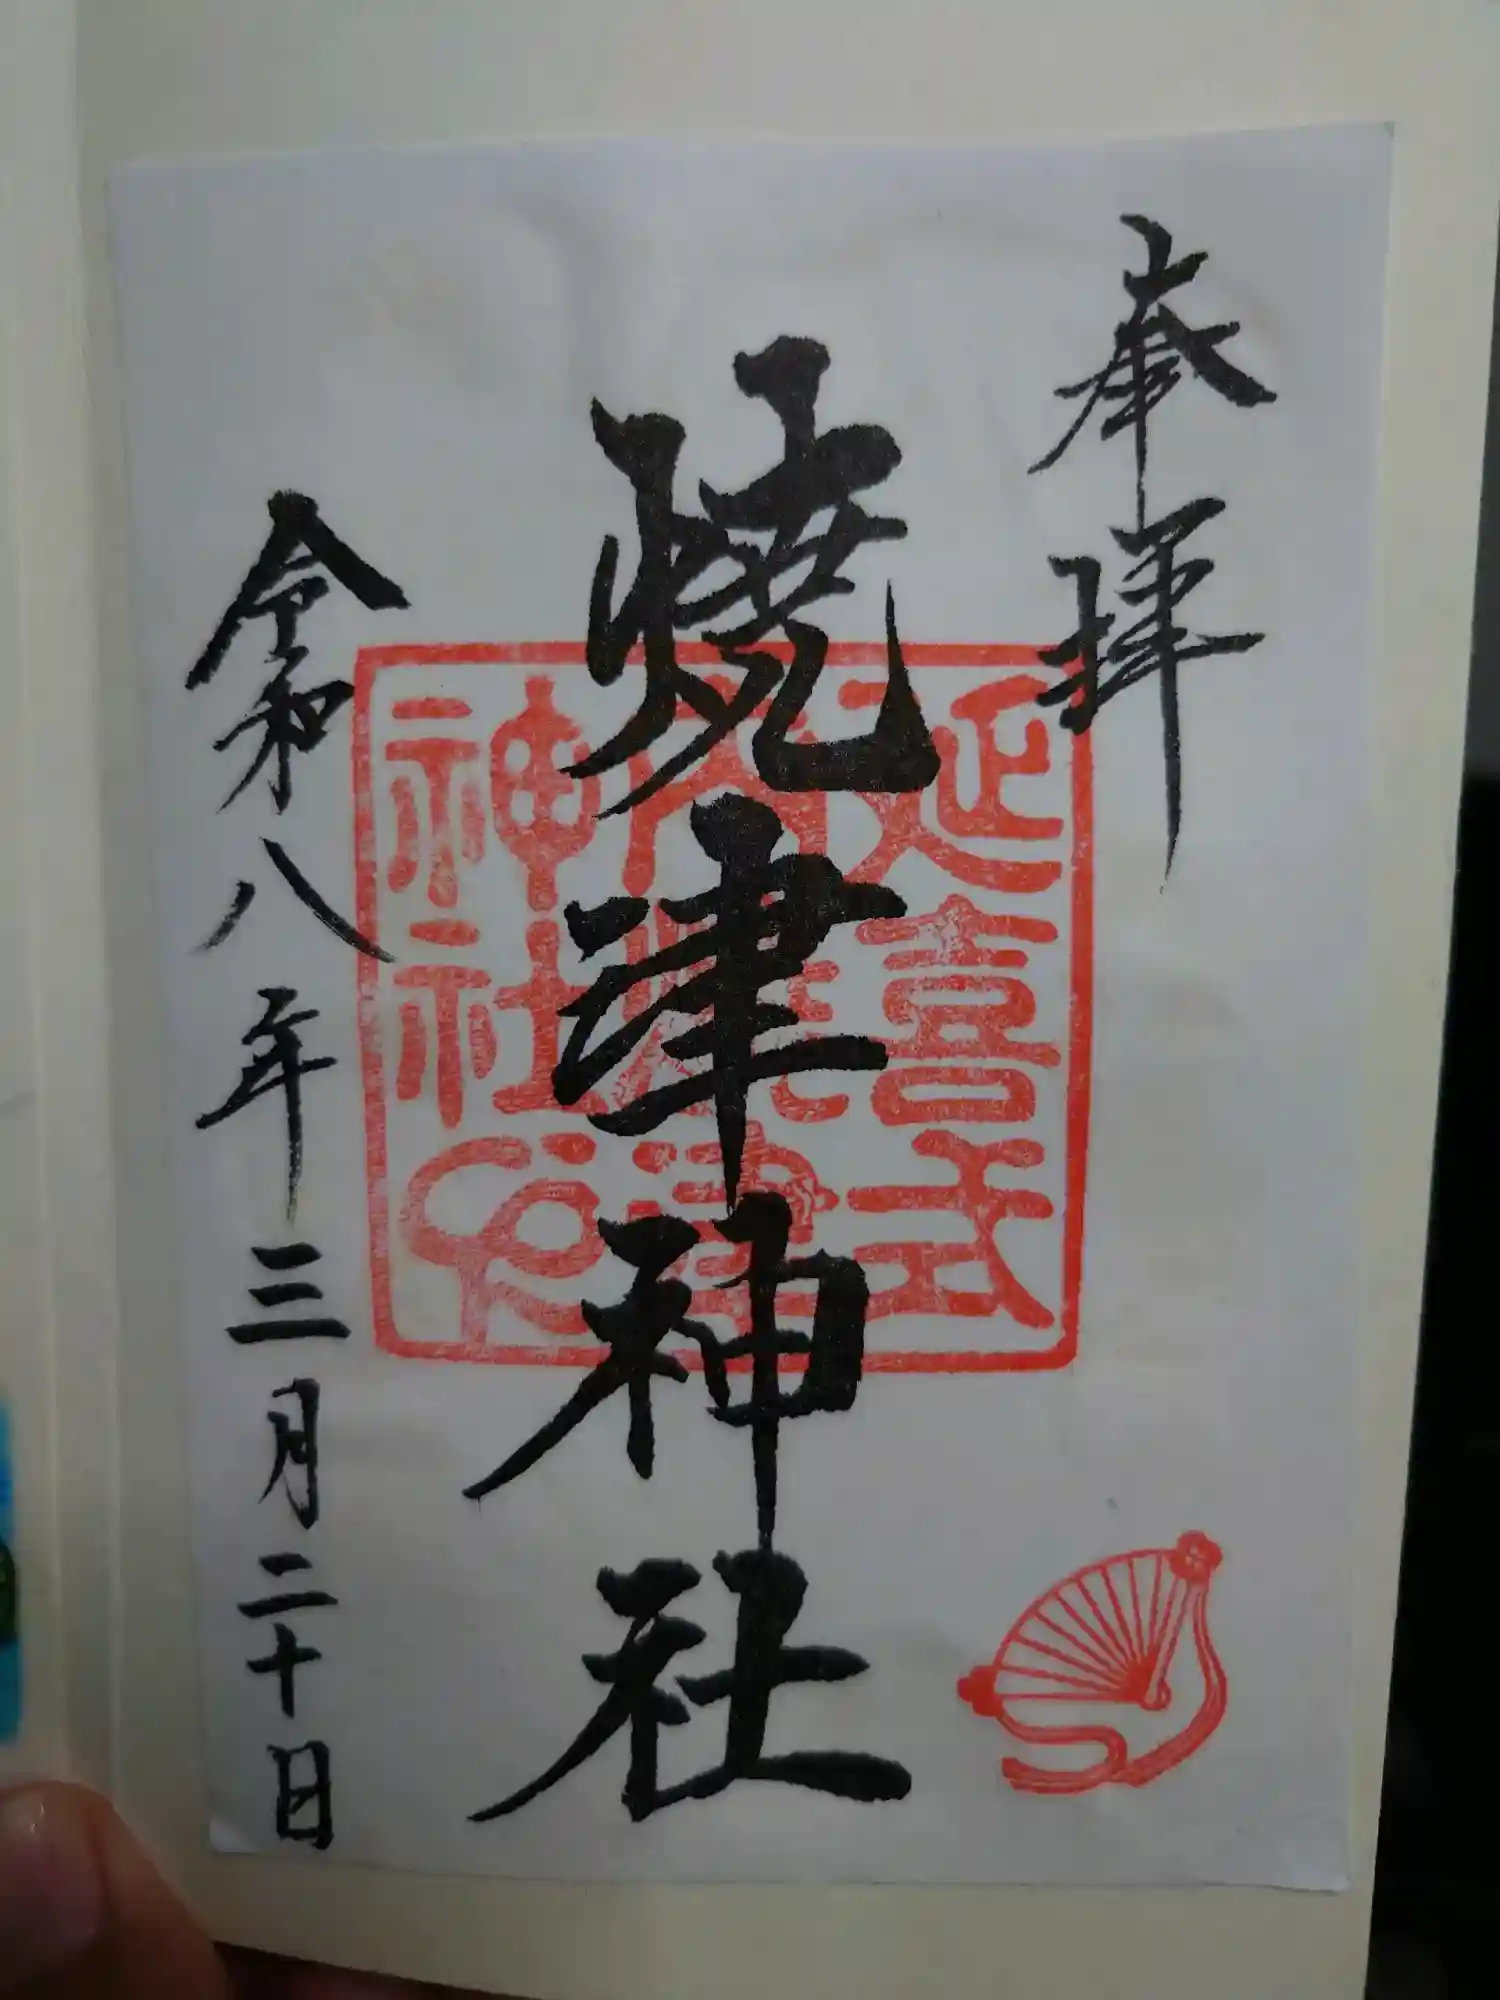 奉拝
焼津神社
延喜式
内焼津
神社印
令和八年三月二十日